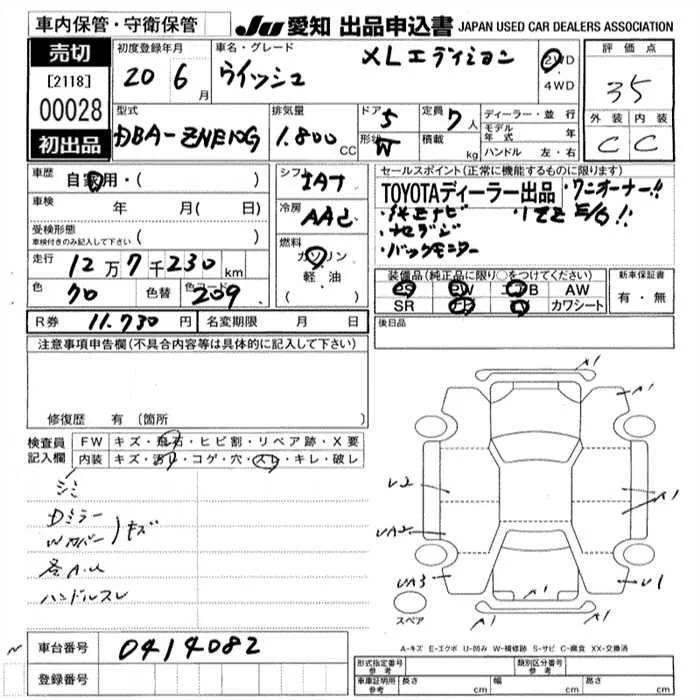 車内保管・守衛保管
JU 愛知 出品申込書 JAPAN USED CAR DEALERS ASSOCIATION
売切
[2118]
00028
初出品
初度登録年月
20 6 月
車名・グレード
ウイッシュ XLエディション
2WD
・
4WD
評価点
35
外装 内装
C C
型式
DBA-ZNE10G
排気量
1.800 CC
ドア 5
形状 W
定員 7 人
積載 kg
ディーラー・並行
モデル年式 年
ハンドル 左・右
車歴 自家用・( )
車検 年 月( 日)
受検形態
車検付きのみ記入して下さい ( )
走行 12万7千230km
色 70 色替 色コード 209
シフト IAT
冷房 AAC
燃料
ガソリン
軽・油
( )
セールスポイント(正常に機能するものに限ります)
TOYOTAディーラー出品 ・ワンオーナー!!
・ナビ ・1ZZ E/G!!
・ナビラジ
・バックモニター
装備品(純正品に限り○をつけてください)
PS PW エアB AW
SR カワシート
新車保証書
有・無
後日品
R券 11.730 円 名変期限 月 日
注意事項申告欄(不具合内容等は具体的に記入して下さい)
修復歴 有 [箇所 ]
検査員記入欄
FW キズ・飛石・ヒビ割・リペア跡・X要
内装 キズ・汚レ・コゲ・穴・スレ・キレ・破レ
シミ
Dミラー
Wカバー
キズ
各A.U
ハンドルスレ
A1
A1
U2
A1
UA2
UA3
U1
A1
A1
A1
スペア
A-キズ E-エクボ U-凹み W-補修跡 S-サビ C-腐食 XX-交換済
車台番号 0414082
登録番号
形式指定番号 参考
類別区分番号 参考
車庫証明用 参考 長さ cm 幅 cm 高さ cm